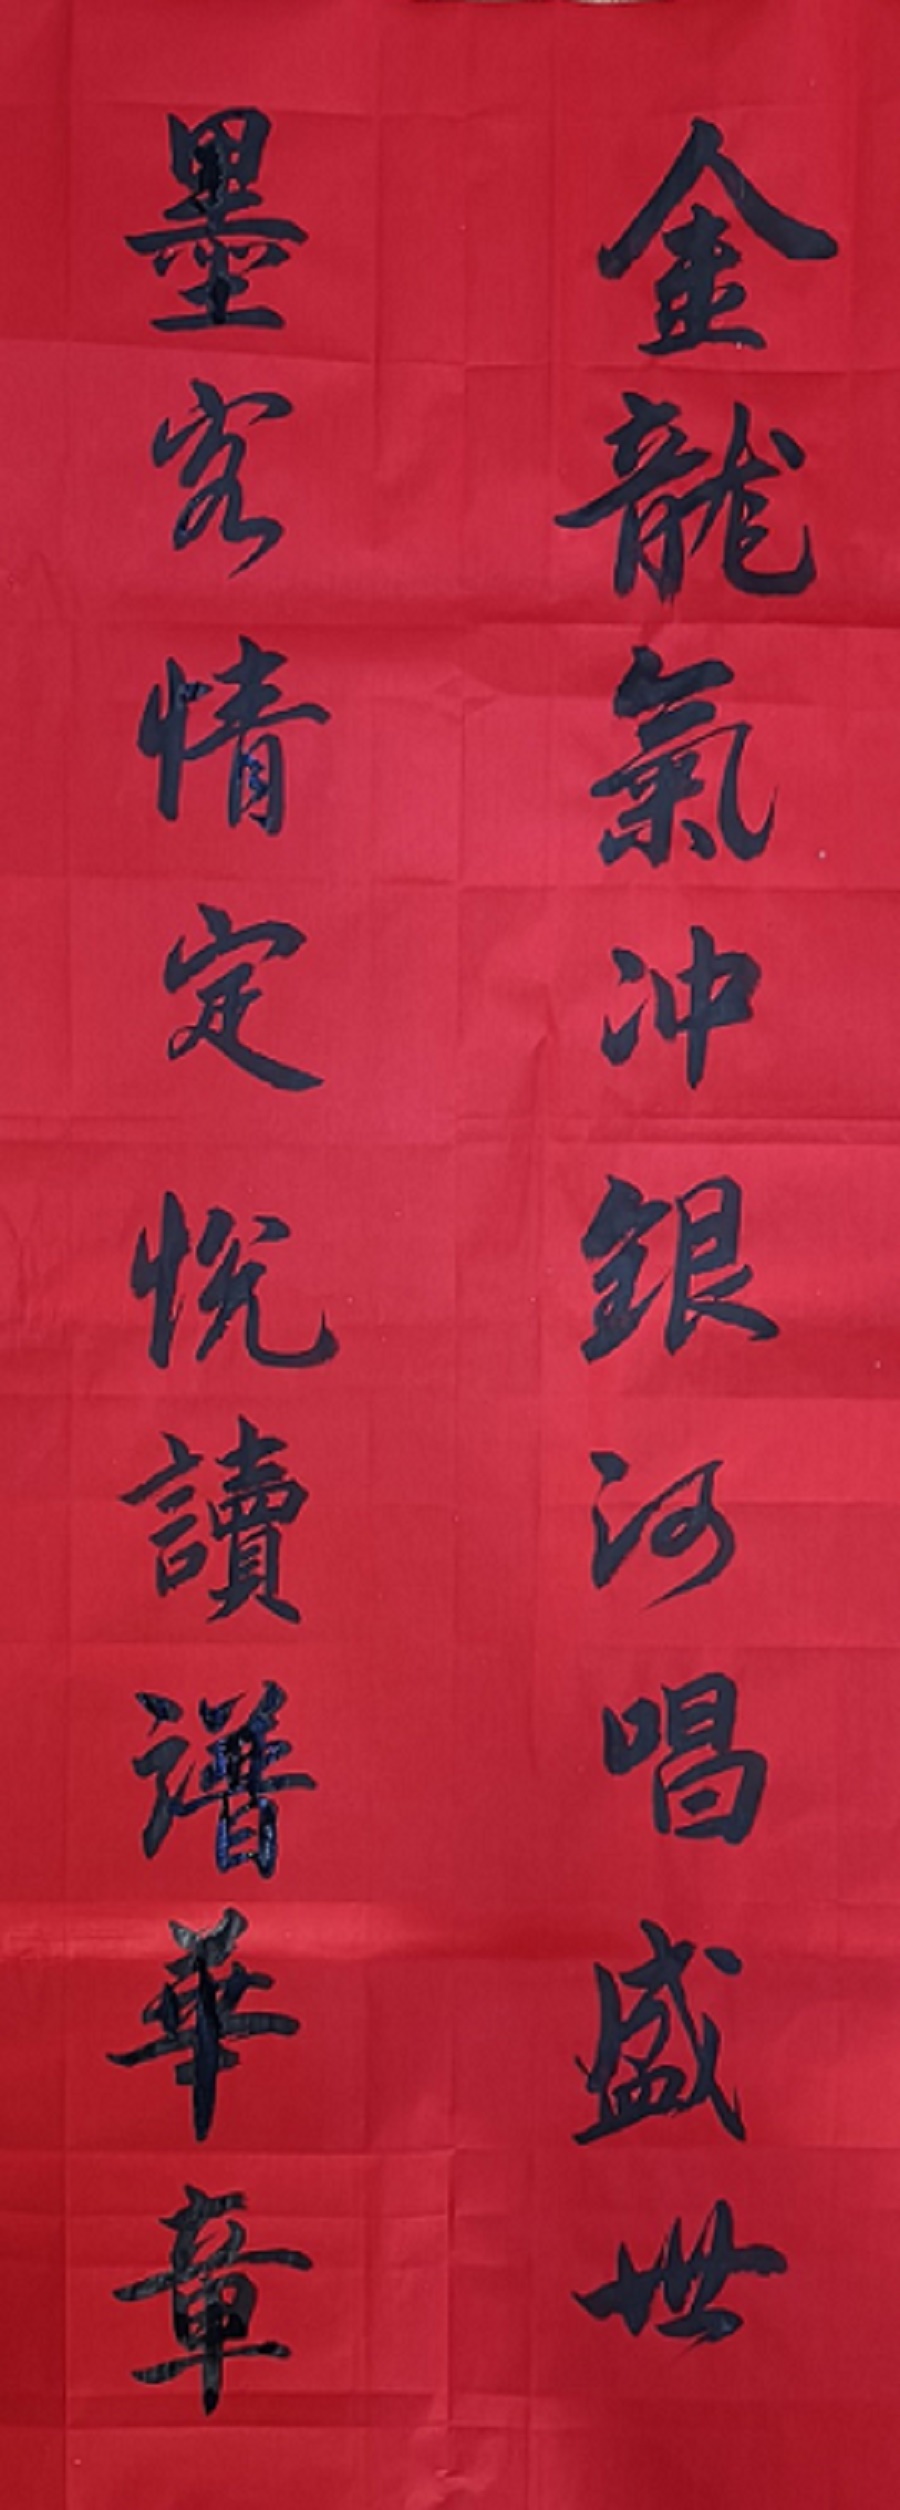 金龍氣冲銀河唱盛世
墨客情定悅讀譜華章